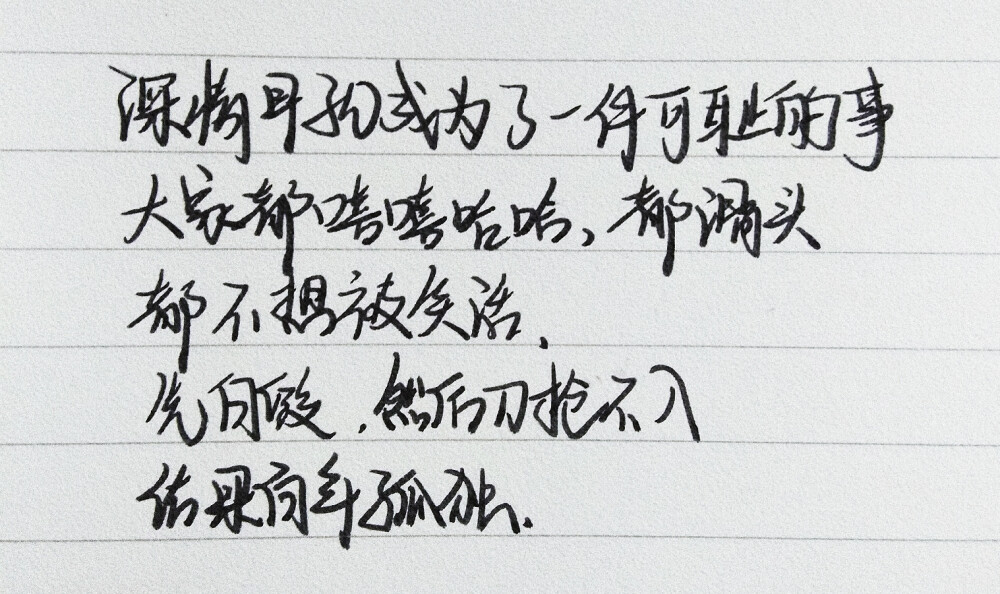 深情早就成为了一件可耻的事
大家都嘻嘻哈哈、都滑头
都不想被笑话、
先自毁、然后刀枪不入
结果百年孤独.